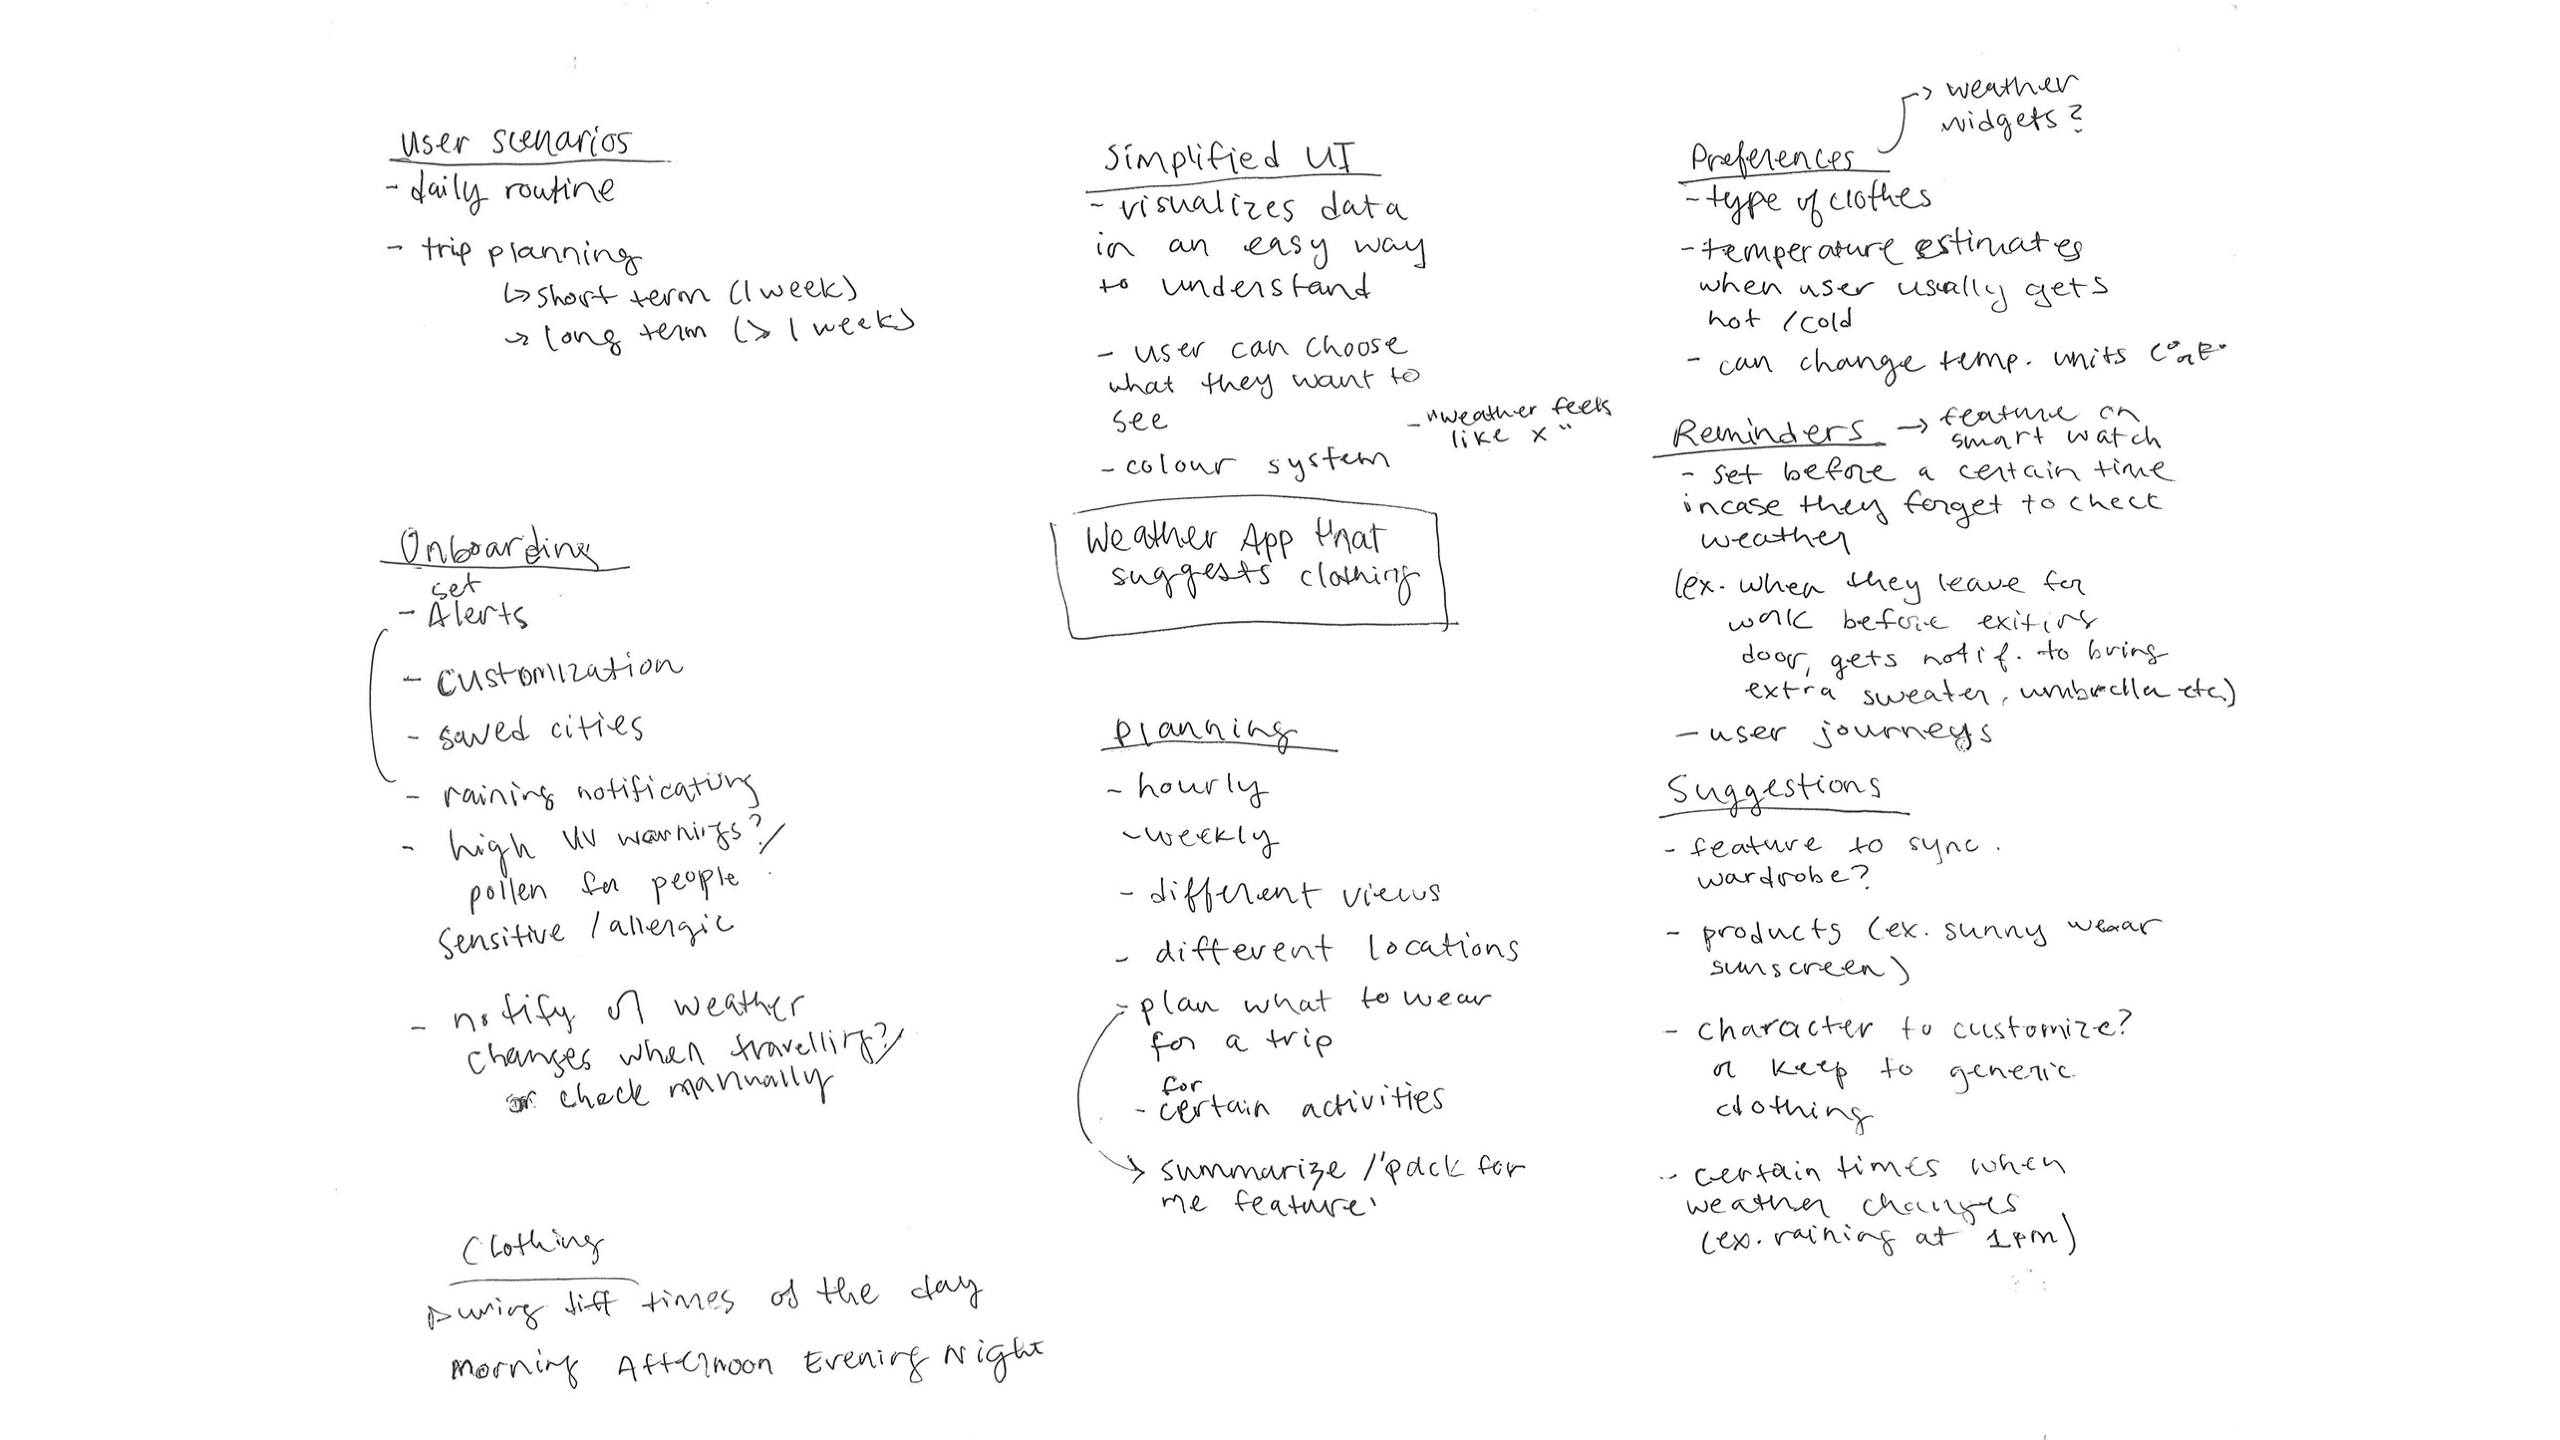 User scenarios
- daily routine
- trip planning
↳ short term (1 week)
→ long term (> 1 week)
Onboarding
set
- Alerts
- customization
- saved cities
- raining notifications
- high UV warnings?/
pollen for people
sensitive / allergic
- notify of weather
changes when travelling?/
or check mannually
Clothing
During diff times of the day
Morning Afternoon Evening Night
Simplified UI
- visualizes data
in an easy way
to understand
- user can choose
what they want to
see
- "weather feels
like x"
- colour system
Weather App that
suggests clothing
Planning
- hourly
- weekly
- different views
- different locations
- plan what to wear
for a trip
for
- certain activities
→ summarize / 'pack for
me feature'
→ weather
widgets?
Preferences
- type of clothes
- temperature estimates
when user usually gets
hot / cold
- can change temp. units C° or F°
Reminders → feature on
smart watch
- set before a certain time
incase they forget to check
weather
(ex. when they leave for
work before exiting
door, gets notif. to bring
extra sweater, umbrella etc.)
- user journeys
Suggestions
- feature to sync
wardrobe?
- products (ex. sunny wear
sunscreen)
- character to customize?
or keep to generic
clothing
- certain times when
weather changes
(ex. raining at 1pm)